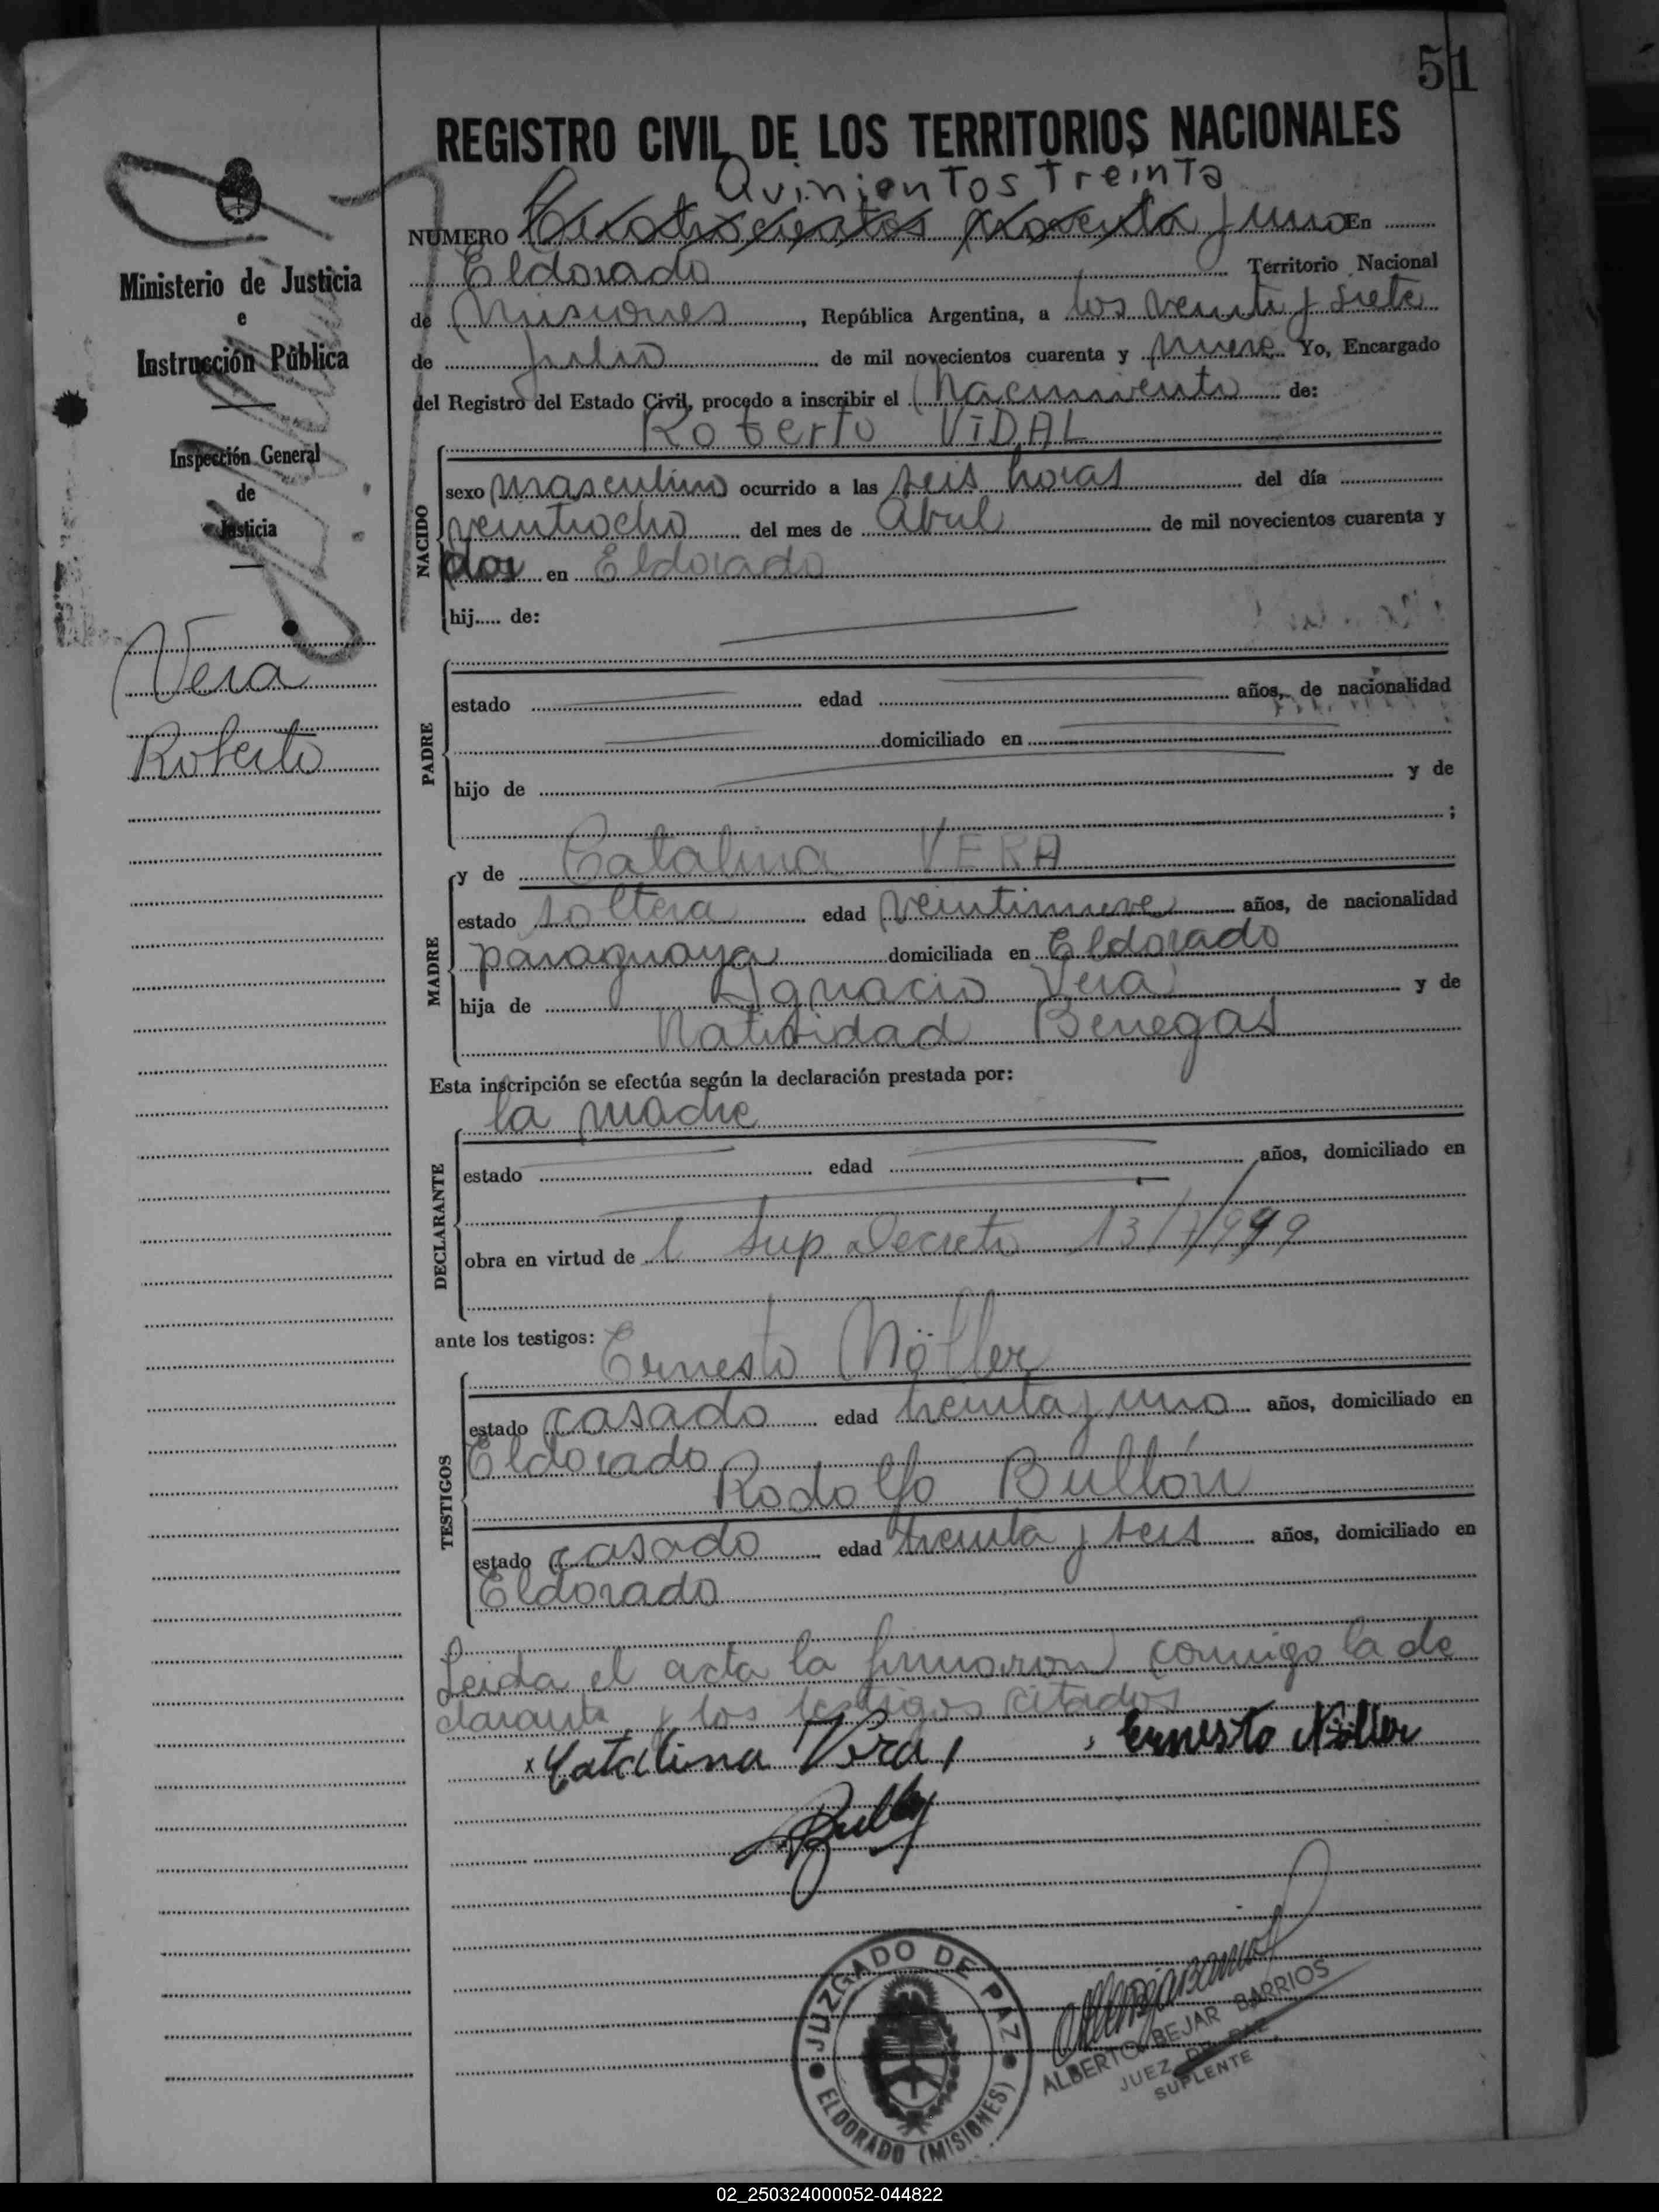 51
REGISTRO CIVIL DE LOS TERRITORIOS NACIONALES
Quinientos Treinta
NUMERO Cuatrocientos Noventa y uno En
Eldorado Territorio Nacional
de Misiones, República Argentina, a los veinte y siete
de julio de mil novecientos cuarenta y nueve Yo, Encargado
del Registro del Estado Civil, procedo a inscribir el Nacimiento de:
Roberto VIDAL
NACIDO
sexo masculino ocurrido a las seis horas del día
veintiocho del mes de Abril de mil novecientos cuarenta y
dos en Eldorado
hij..... de:
PADRE
estado edad años, de nacionalidad
domiciliado en
hijo de y de
;
y de Catalina VERA
MADRE
estado soltera edad veintinueve años, de nacionalidad
paraguaya domiciliada en Eldorado
hija de Ignacio Vera y de
Natividad Benegas
Esta inscripción se efectúa según la declaración prestada por:
la madre
DECLARANTE
estado edad años, domiciliado en
obra en virtud de Sup. Decreto 13/7/949
ante los testigos: Ernesto Nöller
TESTIGOS
estado casado edad treinta y uno años, domiciliado en
Eldorado
Rodolfo Bullón
estado casado edad treinta y seis años, domiciliado en
Eldorado
Leida el acta la firmaron conmigo la de
clarante y los testigos citados
x Catalina Vera, Ernesto Nöller
JUZGADO DE PAZ
ELDORADO (MISIONES)
ALBERTO BEJAR BARRIOS
JUEZ DE PAZ
SUPLENTE
Ministerio de Justicia
e
Instrucción Pública
Inspección General
de
Justicia
Vera
Roberto
02_250324000052-044822